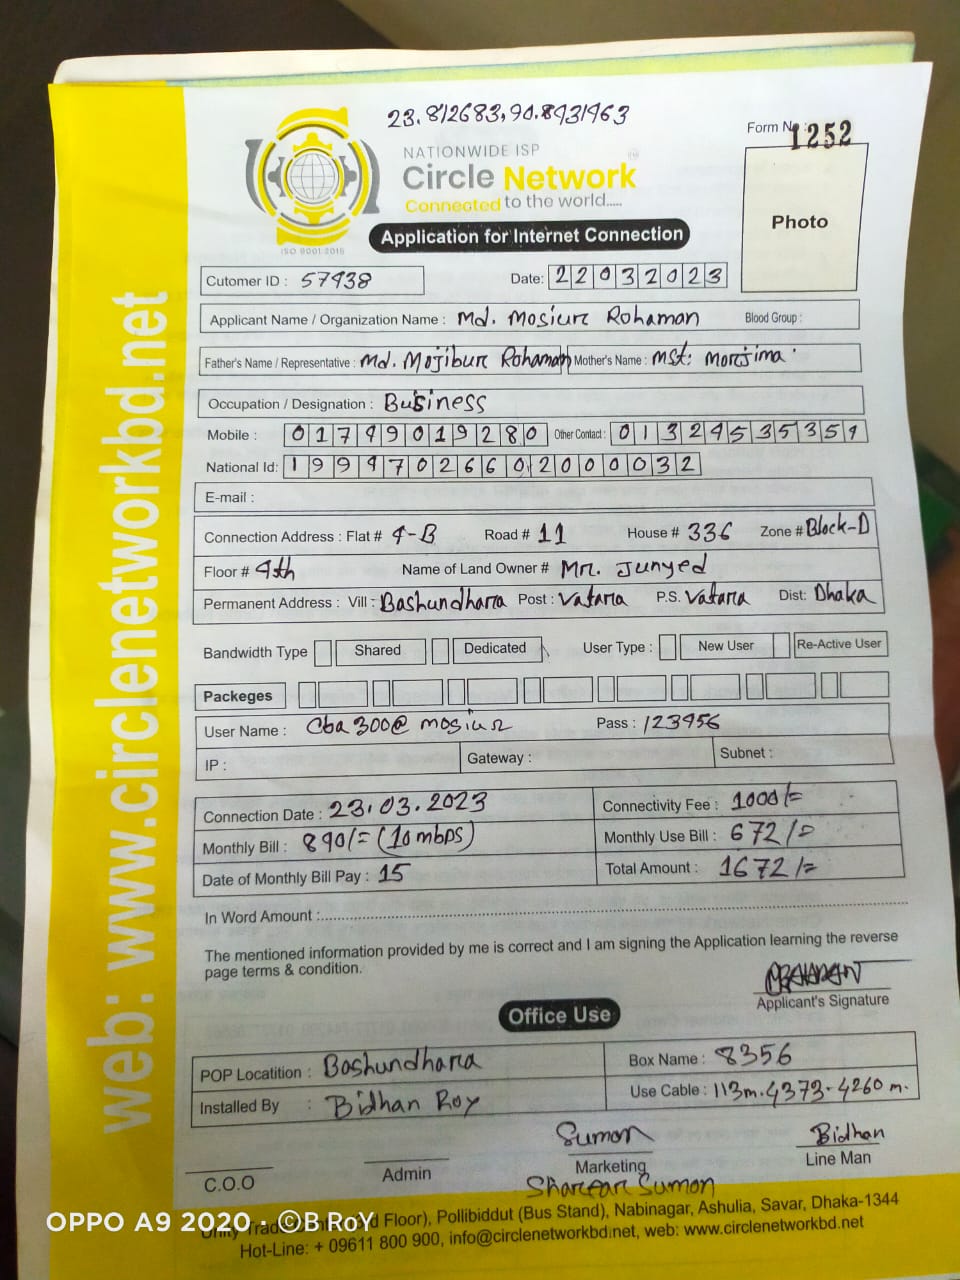 23.812683,90.4431463
Form No : 1252
NATIONWIDE ISP
Circle Network
Connected to the world.....
ISO 9001:2015
Photo
Application for Internet Connection
Cutomer ID : 57438 Date: 22032023
Applicant Name / Organization Name : Md. Mosiur Rohaman Blood Group :
Father's Name / Representative : Md. Mojibur Rohaman Mother's Name : Mst: Morjima
Occupation / Designation : Business
Mobile : 01749019280 Other Contact : 01324535359
National Id: 19947026602000032
E-mail :
Connection Address : Flat # 4-B Road # 11 House # 336 Zone # Block-D
Floor # 4th Name of Land Owner # Mr. Junyed
Permanent Address : Vill : Bashundhara Post : Vatara P.S. Vatara Dist: Dhaka
Bandwidth Type Shared Dedicated User Type : New User Re-Active User
Packeges
User Name : Cba300@mosiur Pass : 123456
IP : Gateway : Subnet :
Connection Date : 23.03.2023 Connectivity Fee : 1000/=
Monthly Bill : 890/= (10mbps) Monthly Use Bill : 672/=
Date of Monthly Bill Pay : 15 Total Amount : 1672/=
In Word Amount :
The mentioned information provided by me is correct and I am signing the Application learning the reverse
page terms & condition.
Applicant's Signature
Office Use
POP Locatition : Bashundhara Box Name : 8356
Installed By : Bidhan Roy Use Cable : 113m.4373-4260 m.
Sumon Bidhan
C.O.O Admin Marketing Line Man
Sharfar Sumon
3rd Floor), Pollibiddut (Bus Stand), Nabinagar, Ashulia, Savar, Dhaka-1344
Hot-Line: + 09611 800 900, info@circlenetworkbd.net, web: www.circlenetworkbd.net
web: www.circlenetworkbd.net
OPPO A9 2020 · ©B.RoY